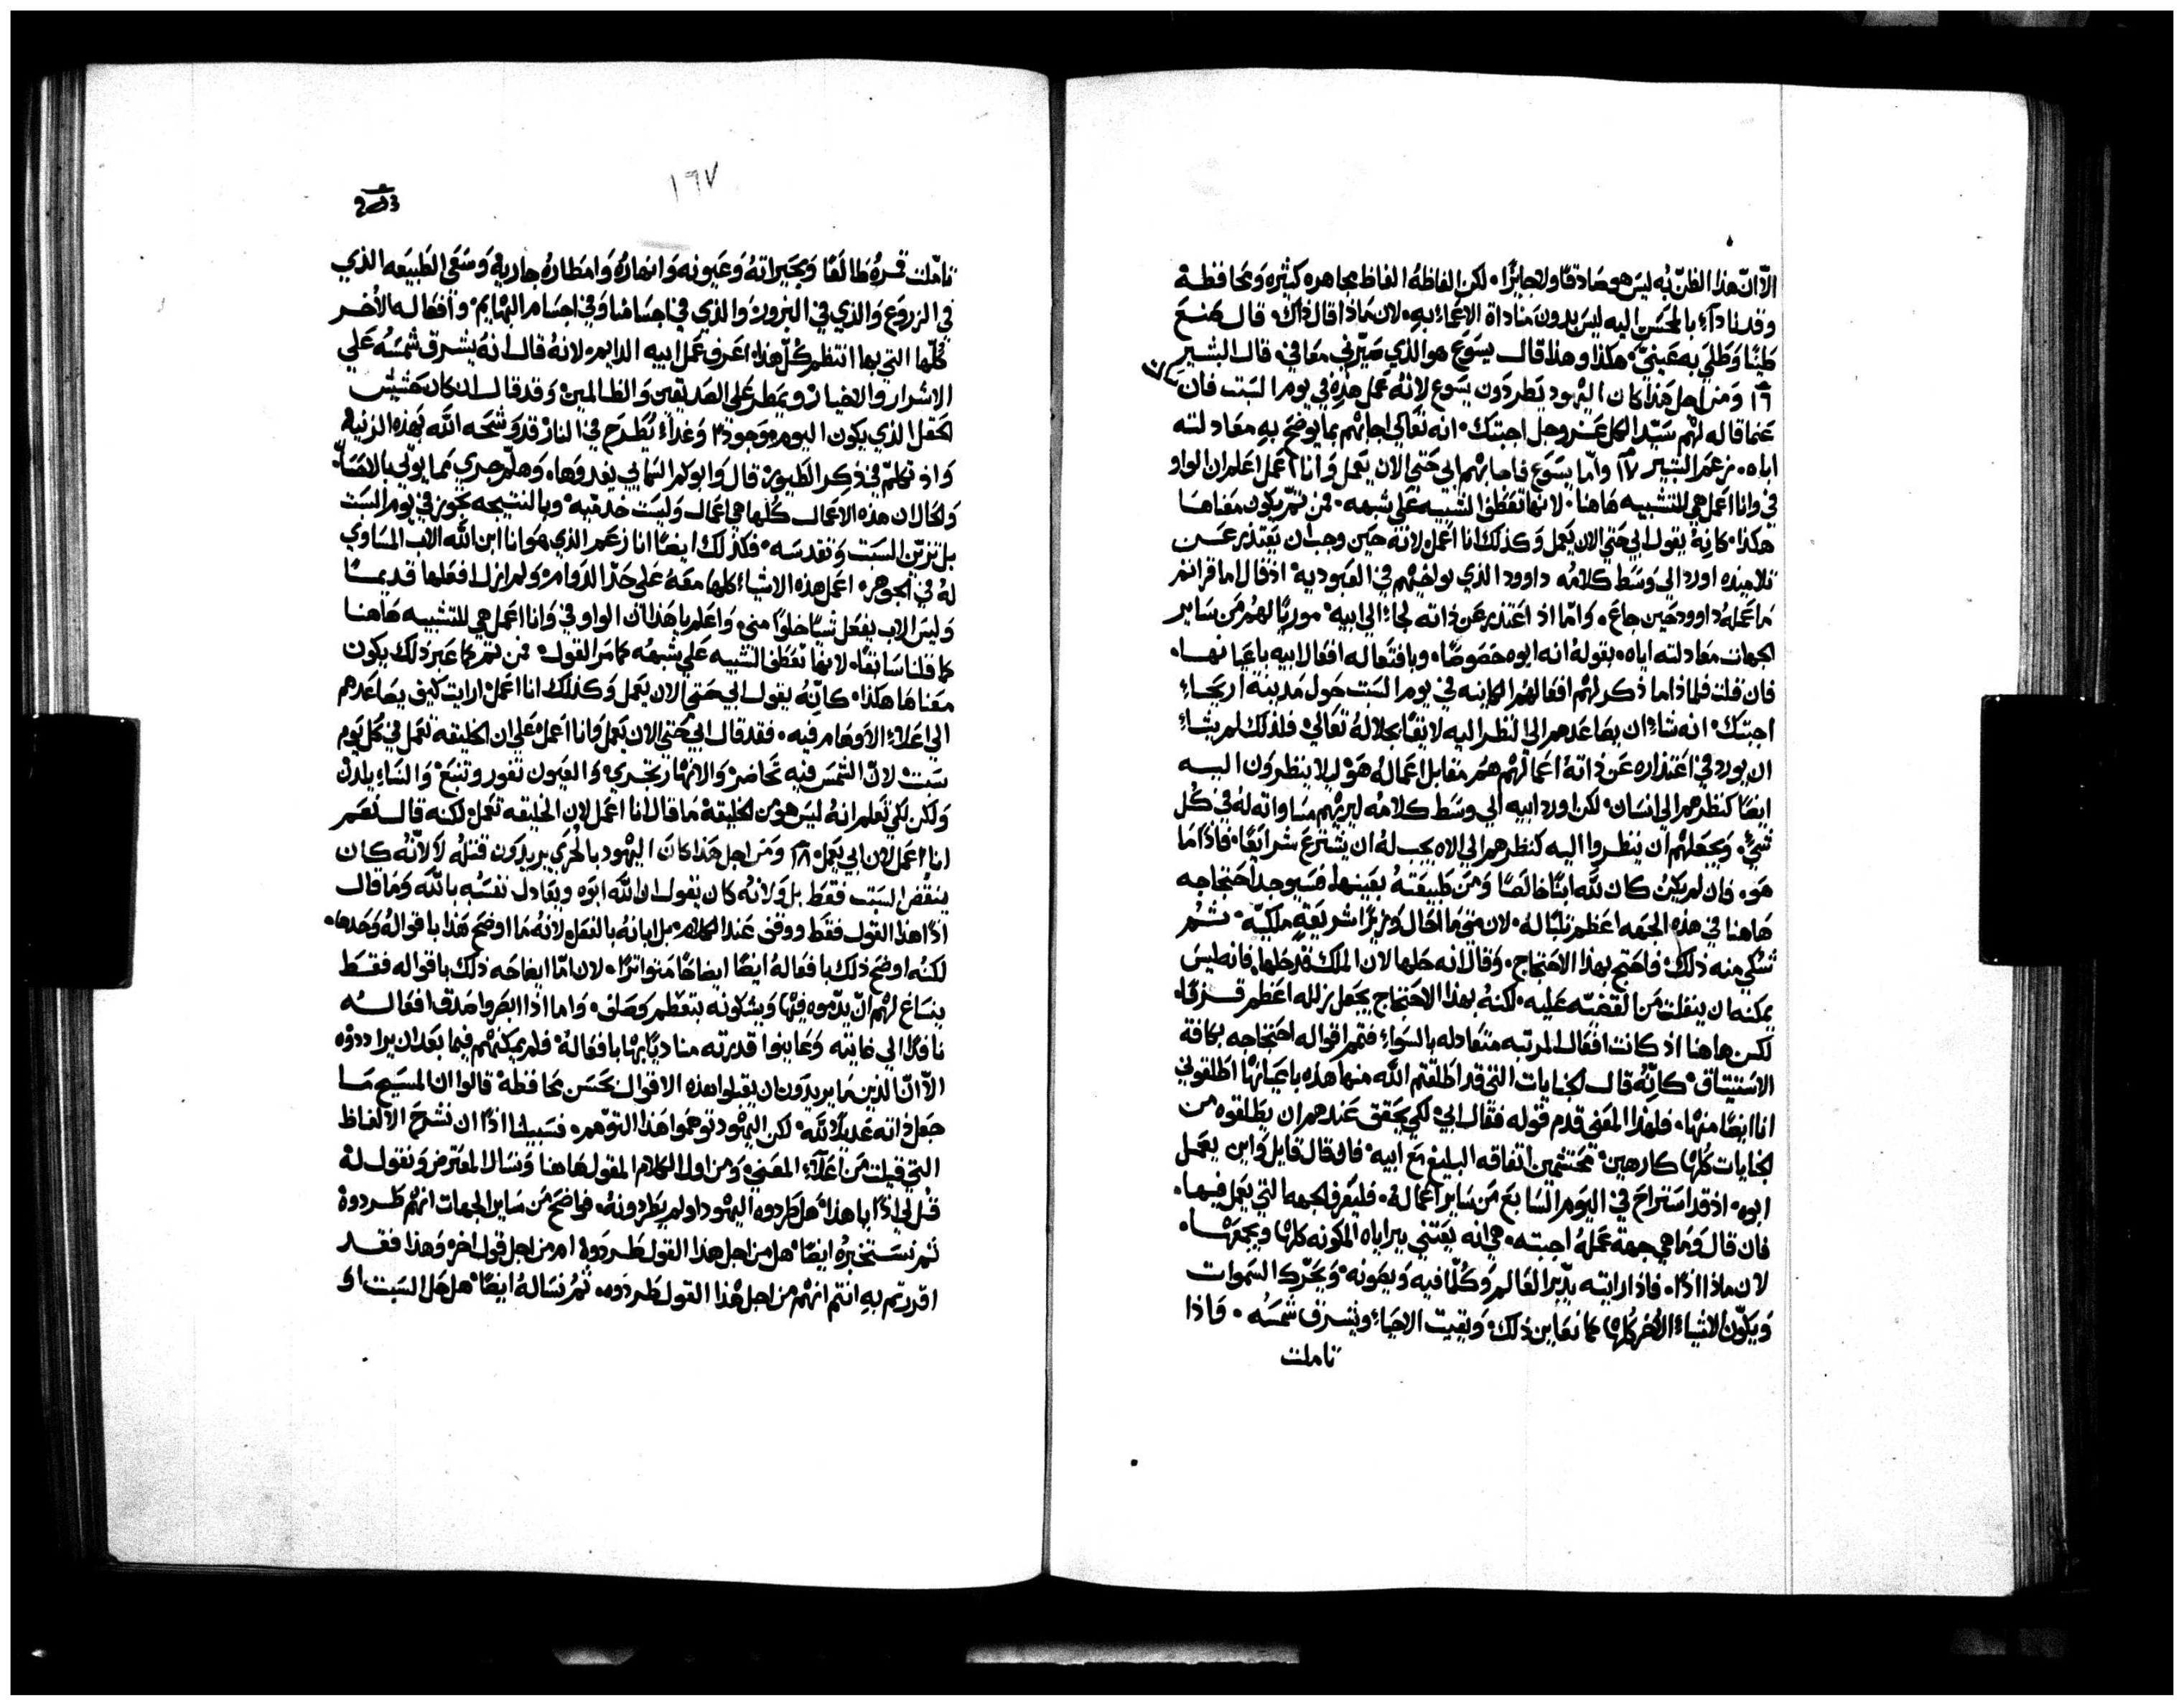 الّا انّ هذا الظنّ به ليس هو صادقًا ولا جايزًا. لكن الفاظهُ الفاظ مجاهره كثيره ومحافظة
وقد نادآء بالمحسن اليه ليس بدون مناداة الاعماء به. لان ماذا قال ذاك. قال صنع
طينًا وطلي به عينيّ. هكذا وهذا قال يسوع هو الذي صيّرني معافي. قال البشير
١٦ ومن اجل هذا كان اليهود يطردون يسوع لانهُ عمل هذه في يوم السبت فان
عما قاله لهم سيّد الكل عز وجل اجبتك. انه تعالي اجابهم بما يوضح به معادلته
اباه. زعم البشير ١٧ وامّا يسوع فاجابهم ابي حتي الان يعمل وانا اعمل اعلم ان الواو
في وانا اعمل هي للتشبيه هاهنا. لانها تعطف الشبيه علي شبهه. فمن ثمّ يكون معناها
هكذا. كانهُ يقول ابي حتي الان يعمل وكذلك انا اعمل لانهُ حين وجب ان يعتذر عن
تلاميذه اورد الي وسط كلامه داوود الذي يواخيهم في العبوديه. اذ قال اما قراتم
ما عملهُ داوود حين جاع. وامّا اذ اعتذر عن ذاته لجاء الي ابيه. موريًا لهم من ساير
الجهات معادلته اباه. بقولهُ انه ابوه خصوصًا. وبافتعاله افعال ابيه باعيانها.
فان قلت فلماذا ما ذكر لهم افعالهم الكاينه في يوم السبت حول مدينة اريحاء
اجبتك. انه شاء ان يصاعدهم الي النظر اليه لايقًا بجلالهُ تعالي. فلذلك لم يشاء
ان يورد في اعتذاره عن ذاتهُ اعمالهم هم مقابل اعمالهُ هو ليلا ينظرون اليه
ايضًا كنظرهم الي انسان. لكن اورد ابيه الي وسط كلامه ليريهم مساواته لهُ في كل
شيء. ويجعلهم ان ينظروا اليه كنظرهم الي الاه يجب لهُ ان يشترع شرايعًا. فاذًا ما
هو. فان لم يكن كان للّه ابنًا خالصًا ومن طبيعتهُ بعينها. فسيوجد احتجاجه
هاهنا في هذه الجهه اعظم ثلبًا له. لان متي ما احال وزيرًا شريعةٍ ملكيّه. ثم
شكي منه ذلك. فاحتج بهذا الاحتجاج. وقال انه حلها لان الملك قد حلها. فانه ليس
يمكنه ان ينفلت من القصّه عليه. لكنهُ بهذا الاحتجاج يجعل زلله اعظم قرفًا.
لكن هاهنا اذ كانت افعال المرتبه متعادله بالسواء. فتمم اقواله احتجاجه بكافة
الاستيثاق. كانّه قال الجنايات التي قد اطلقتم اللّه منها هذه باعيانها اطلقوني
انا ايضًا منها. فلهذا المعني قدم قوله فقال ابي. لكي يحقق عندهم ان يطلقوه من
الجنايات كلها كارهين. محتشمين اتفاقه البليغ مع ابيه. فان قال قايل واين يعمل
ابوه. اذ قد استراح في اليوم السابع من ساير اعمالهُ. فليعرف الجهه التي يعمل فيها.
فان قال وما هي جهة عملهُ اجبته. هي انه يعتني ببراياه المكونه كلها ويجمعها.
لان ماذا اذًا. فاذا رايته يدّبر العالم وكلّما فيه ويصونه. ويحّرك السموات
ويكوّن الاشياء الاخر كلها كما نعاين ذلك. ويقيت الاحياء ويشرف شمسه. فاذا
تاملت
١٦٧
تاملت قمرهُ طالعًا وبحيراتهُ وعيونه وانهارهُ وامطارهُ جاريه. وسعي الطبيعه الذي
في الزروع والذي في البزور. والذي في اجسامنا وفي اجسام البهايم. وافعاله الاخر
كلّها التي بها انتظم كلّ هذا. اعرف عمل ابيه الدايم. لانهُ قال انهُ يشرق شمسهُ علي
الاشرار والاخيار. ويمطر علي الصديقين والظالمين. وقد قال ان كان حشيش
الحقل الذي يكون اليوم موجودًا وغدًا يُطرح في النار قد وشحه اللّه بهذه الزينه
واذ تكلّم في ذكر الطيور. قال وابوكم السمايي يغدوها. وهلّم جري مما يوّلي بالاقتصا.
والحال ان هذه الاعمال كلها هي اعمال وليست خدميّه. وبالنتيجه تجوز في يوم السبت
بل تزيّن السبت وتقدسه. فكذلك ايضًا انا زعم الذي هو انا ابن اللّه الاب المساوي
لهُ في الجوهر. اعمل هذه الاشياء كلها معهُ علي حدّ الدوام. ولم ازل افعلها قديمًا
وليس الاب يفعل شيًا خلوًا مني. واعلم يا هذا ان الواو في وانا اعمل هي للتشبيه هاهنا
كما قلنا سابقًا. لانها تعطف الشبيه علي شبهه كما مر القول. فمن ثم كما عبر ذلك يكون
معناها هكذا. كانّهُ يقول ابي حتي الان يعمل وكذلك انا اعمل. ارايت كيف يصاعدهم
الي اعلاء الاوهام فيه. فقد قال ابي حتي الان يعمل وانا اعمل. علي ان الخليقه تعمل في كل يوم
سبت لانّ الشمس فيه تحاضر. والانهار تجري. والعيون تفور وتنبع. والنساء يلدن
ولكن لكي نعلم انهُ ليس هو من الخليقهْ ما قال انا اعمل لان الخليقه تعمل. لكنه قال نعم
انا اعمل لان ابي يعمل ١٨ ومن اجل هذا كان اليهود بالحري يريدون قتلهُ لا لانّه كان
ينقض السبت فقط بل ولانه كان يقول ان اللّه ابوه ويعادل نفسهُ باللّه وما قال
اذًا هذا القول فقط ووقف عند الكلام. بل ابانهُ بالفعل. لانهُ ما اوضح هذا باقوالهُ وحدها.
لكنه اوضح ذلك بافعالهُ ايضًا ايضاحًا متواترًا. لان امّا ايضاحه ذلك باقواله فقط
ينساغ لهم انّ يذموه فيها ويشكونه بتعظم وصلف. واما اذا ابصروا صدق افعاله
نافذًا الي غايته وعاينوا قدرته مناديًا بها بافعالهْ. فلم يمكنهم فيما بعد ان يرادوه
الّا انّ الذين ما يريدون ان يقبلوا هذه الاقوال بحسن محافظهْ قالوا ان المسيح ما
جعل ذاته عديلًا للّه. لكن اليهود توهموا هذا التوّهم. فسبيلنا اذًا ان نشرح الالفاظ
التي قيلت من اعلآء المعني ومن اول الكلام المقول هاهنا ونسال المعترض ونقول لهُ
قل لي اذًا يا هذا. هل طردوه اليهود او لم يطردونهُ. فواضح من ساير الجهات انهم طردوهُ
ثم نستخبرهُ ايضًا. هل من اجل هذا القول طردوهُ ام من اجل قول اخر وهذا فقد
اقررتم بهِ انتم انهم من اجل هذا القول طردوه. ثم نسالهُ ايضًا. هل حل السبت او